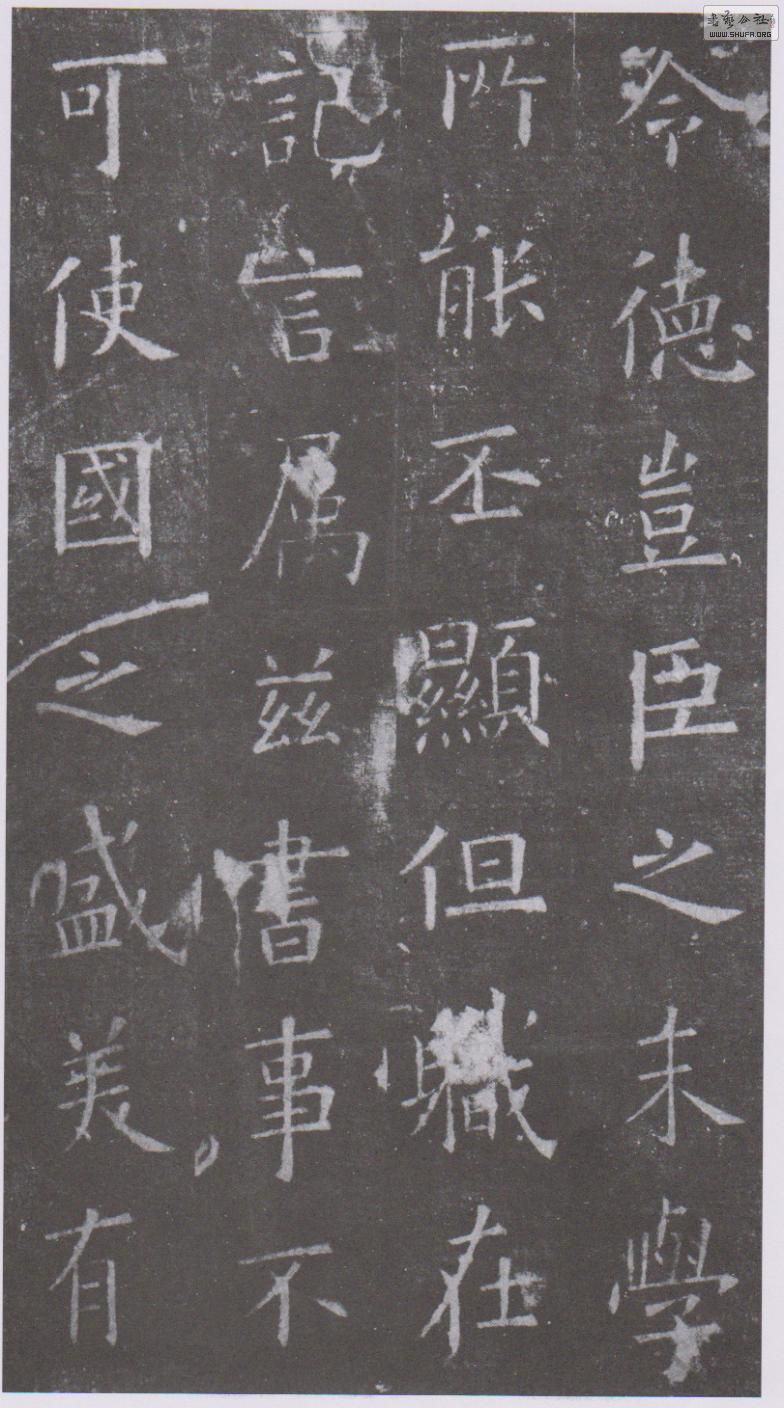 令德豈臣之末學
所能丕顯但職在
記言属茲書事不
可使國之盛美有
書藝公社
www.SHUFA.ORG